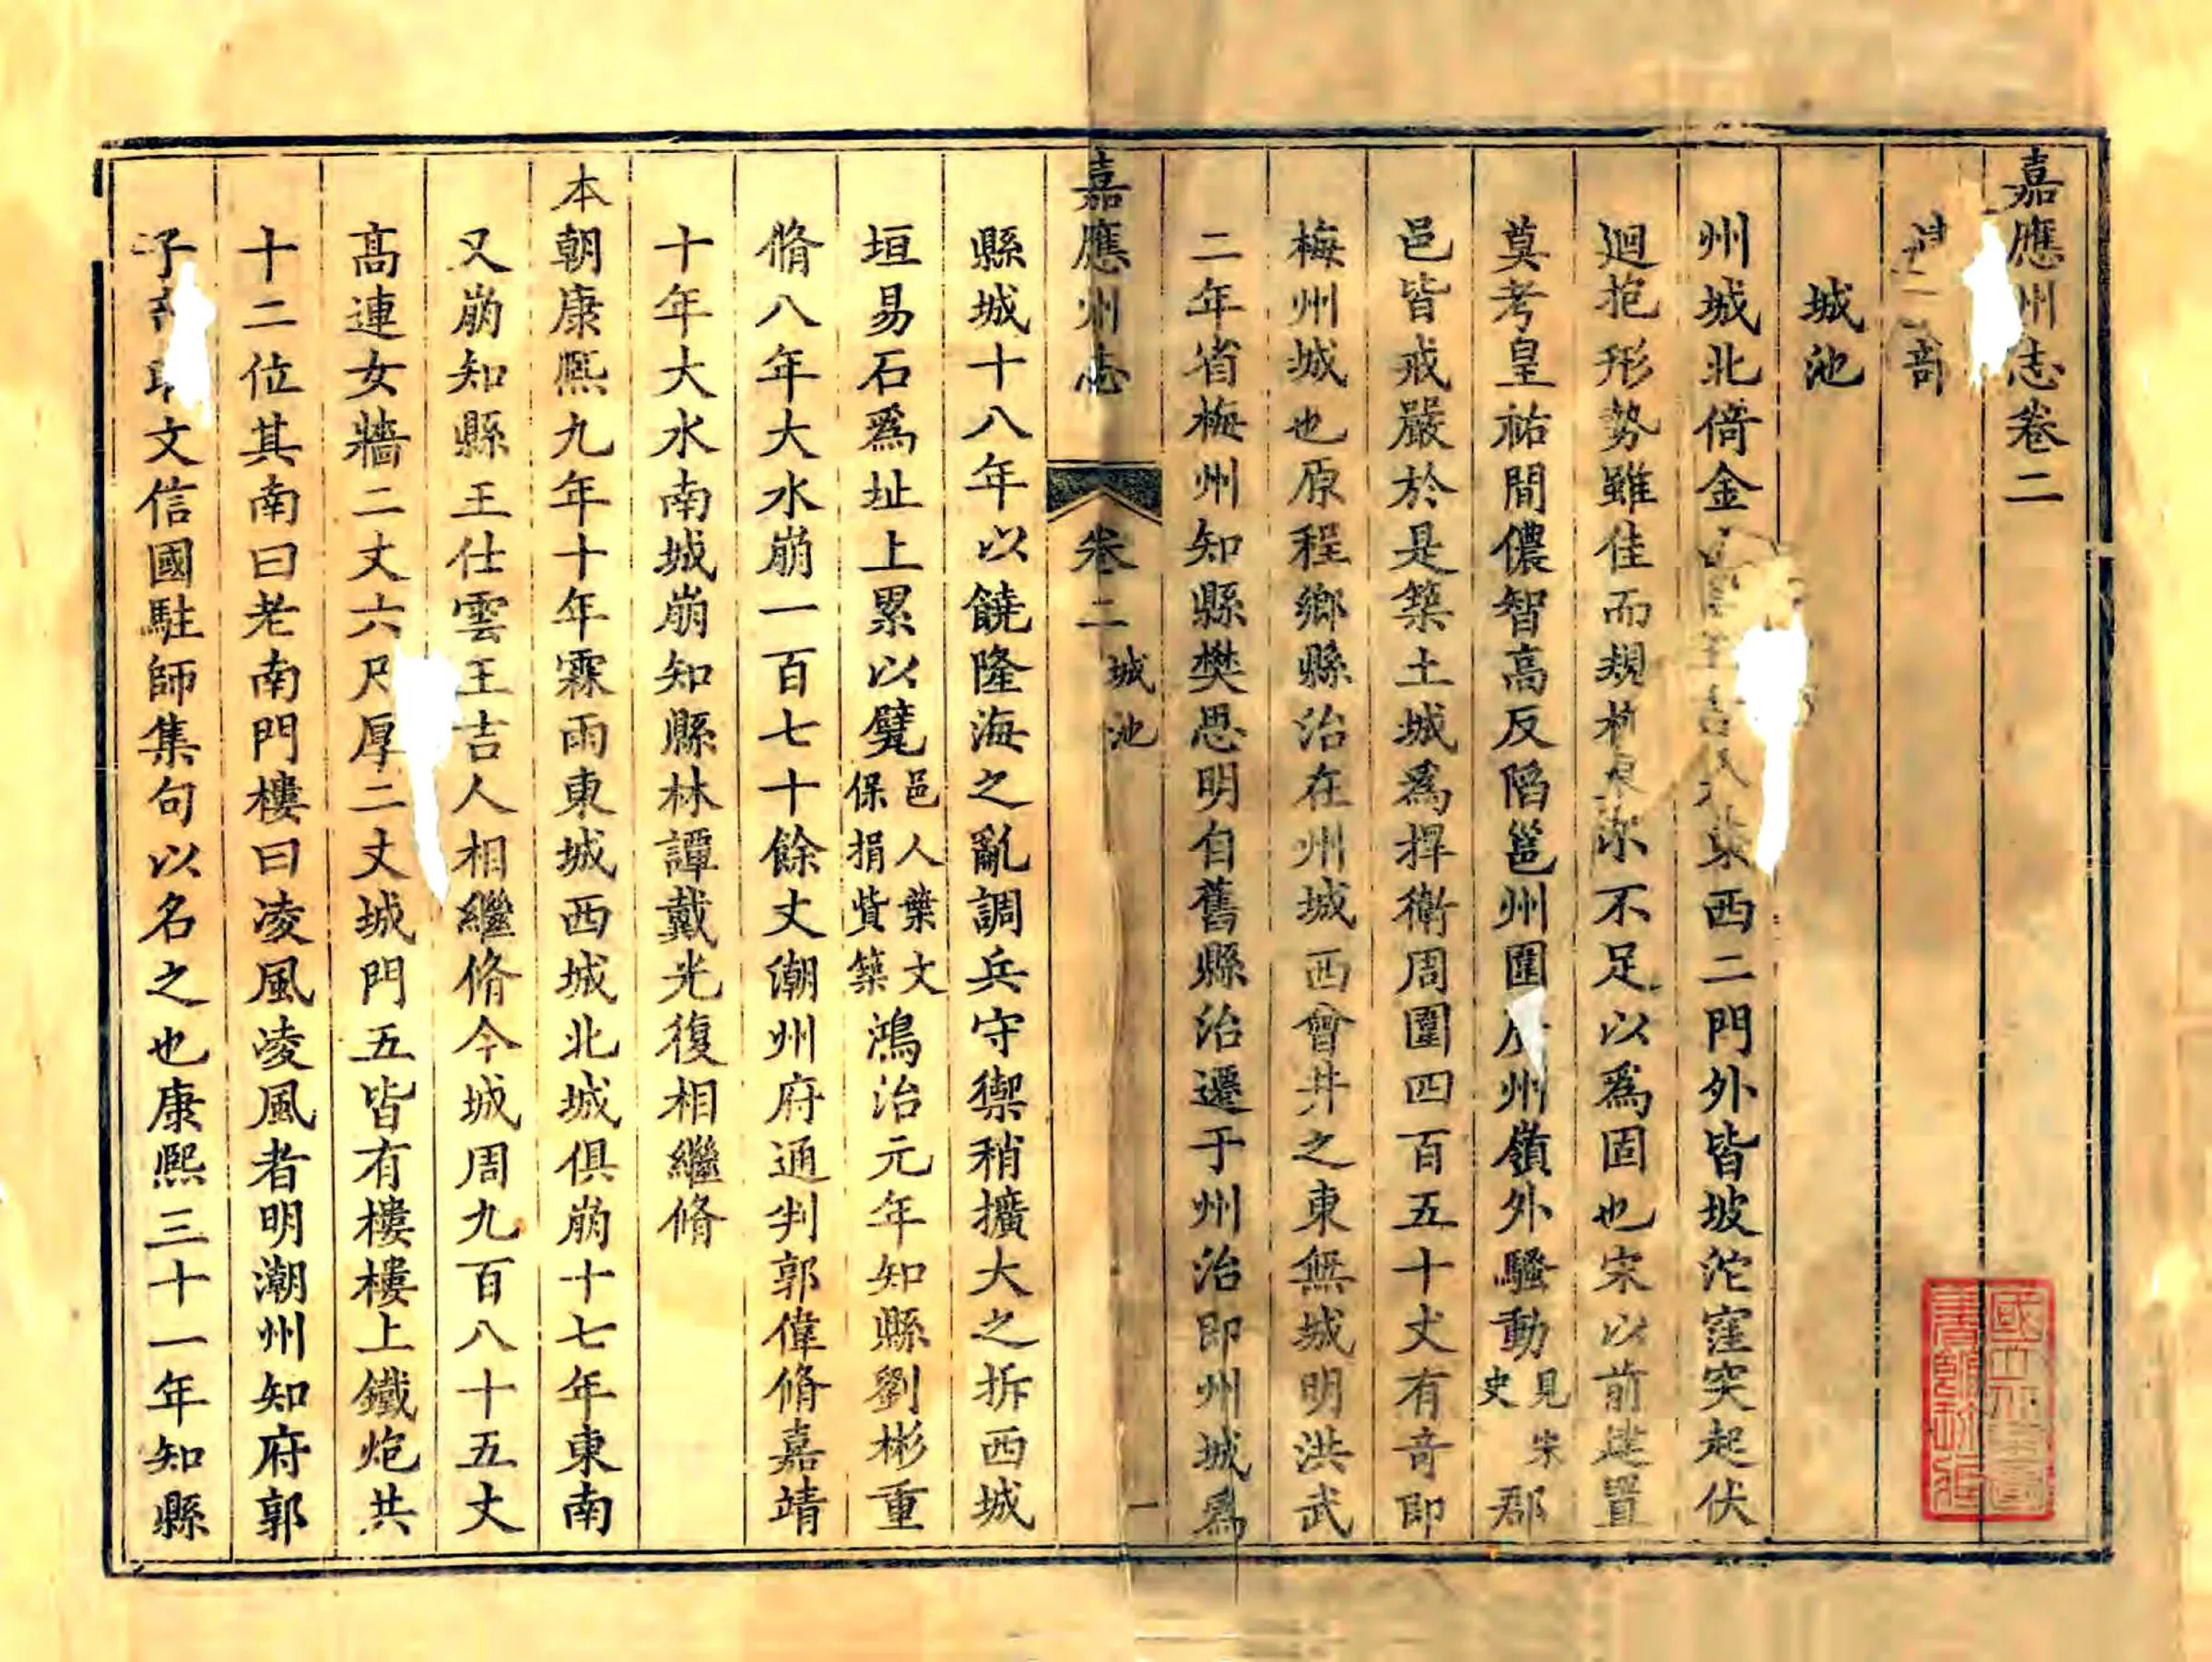 嘉應州志卷二
建置部
城池
州城北倚金山東西二門外皆坡沱窪突起伏
迴抱形勢雖佳而規不足以爲固也宋以前建置
莫考皇祐間儂智高反陷邕州圍廣州嶺外騷動見宋史郡
邑皆戒嚴於是築土城爲捍衛周圍四百五十丈有奇即
梅州城也原程鄉縣治在州城西會井之東無城明洪武
二年省梅州知縣樊思明自舊縣治遷于州治即州城爲
嘉應州志 卷二 城池 一
縣城十八年以饒隆海之亂調兵守禦稍擴大之拆西城
垣易石爲址上累以甓邑人葉文保捐貲築鴻治元年知縣劉彬重
脩八年大水崩一百七十餘丈潮州府通判郭偉脩嘉靖
十年大水南城崩知縣林譚戴光復相繼脩
本朝康熙九年十年霖雨東城西城北城俱崩十七年東南
又崩知縣王仕雲王吉人相繼脩今城周九百八十五丈
高連女牆二丈六尺厚二丈城門五皆有樓樓上鐵炮共
十二位其南曰老南門樓曰凌風凌風者明潮州知府郭
子章取文信國駐師集句以名之也康熙三十一年知縣